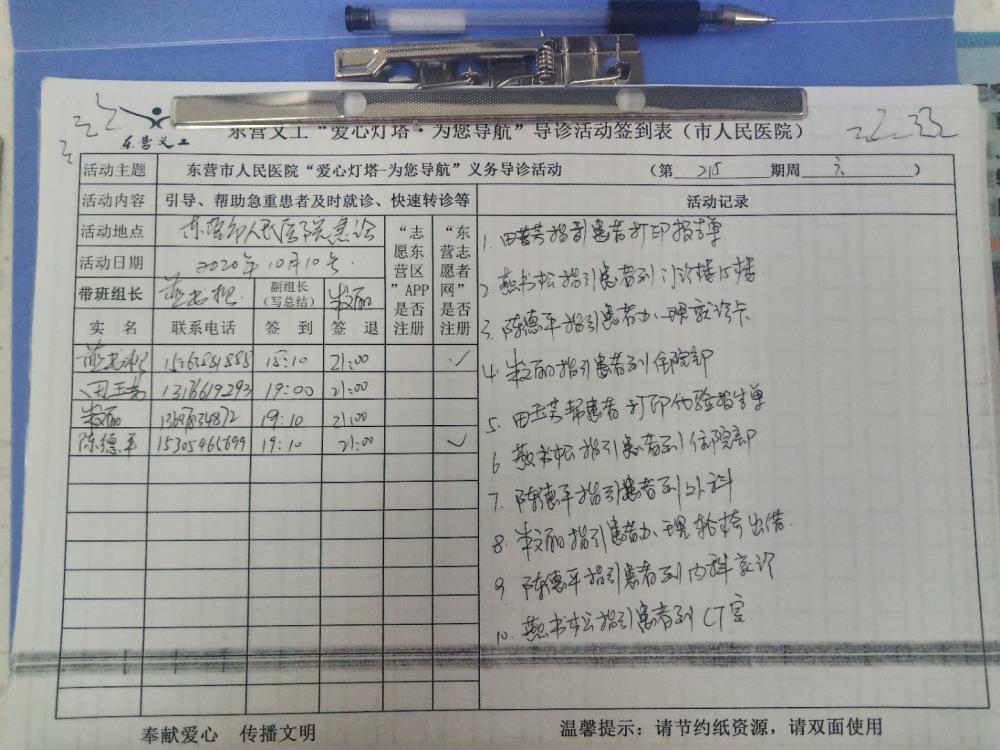 东营义工
东营义工“爱心灯塔·为您导航”导诊活动签到表（市人民医院）
活动主题 东营市人民医院“爱心灯塔-为您导航”义务导诊活动 （第 215 期周 六 ）
活动内容 引导、帮助急重患者及时就诊、快速转诊等 活动记录
活动地点 东营市人民医院急诊
活动日期 2020年10月10号
带班组长 燕书松 副组长（写总结） 朱丽
“志愿东营区”APP是否注册
“东营志愿者网”是否注册
实 名 联系电话 签 到 签 退
燕书松 18:10 21:00 ✓
田玉芳 13176619293 19:00 21:00
朱丽 19:10 21:00
陈德平 15305465699 19:10 21:00 ✓
1. 田玉芳指引患者打印报告单
2. 燕书松指引患者到门诊楼15楼
3. 陈德平指引患者办理就诊卡
4. 朱丽指引患者到住院部
5. 田玉芳帮患者打印化验报告单
6. 燕书松指引患者到住院部
7. 陈德平指引患者到外科
8. 朱丽指引患者办理轮椅出借.
9. 陈德平指引患者到内科就诊
10. 燕书松指引患者到CT室
奉献爱心 传播文明 温馨提示：请节约纸资源，请双面使用